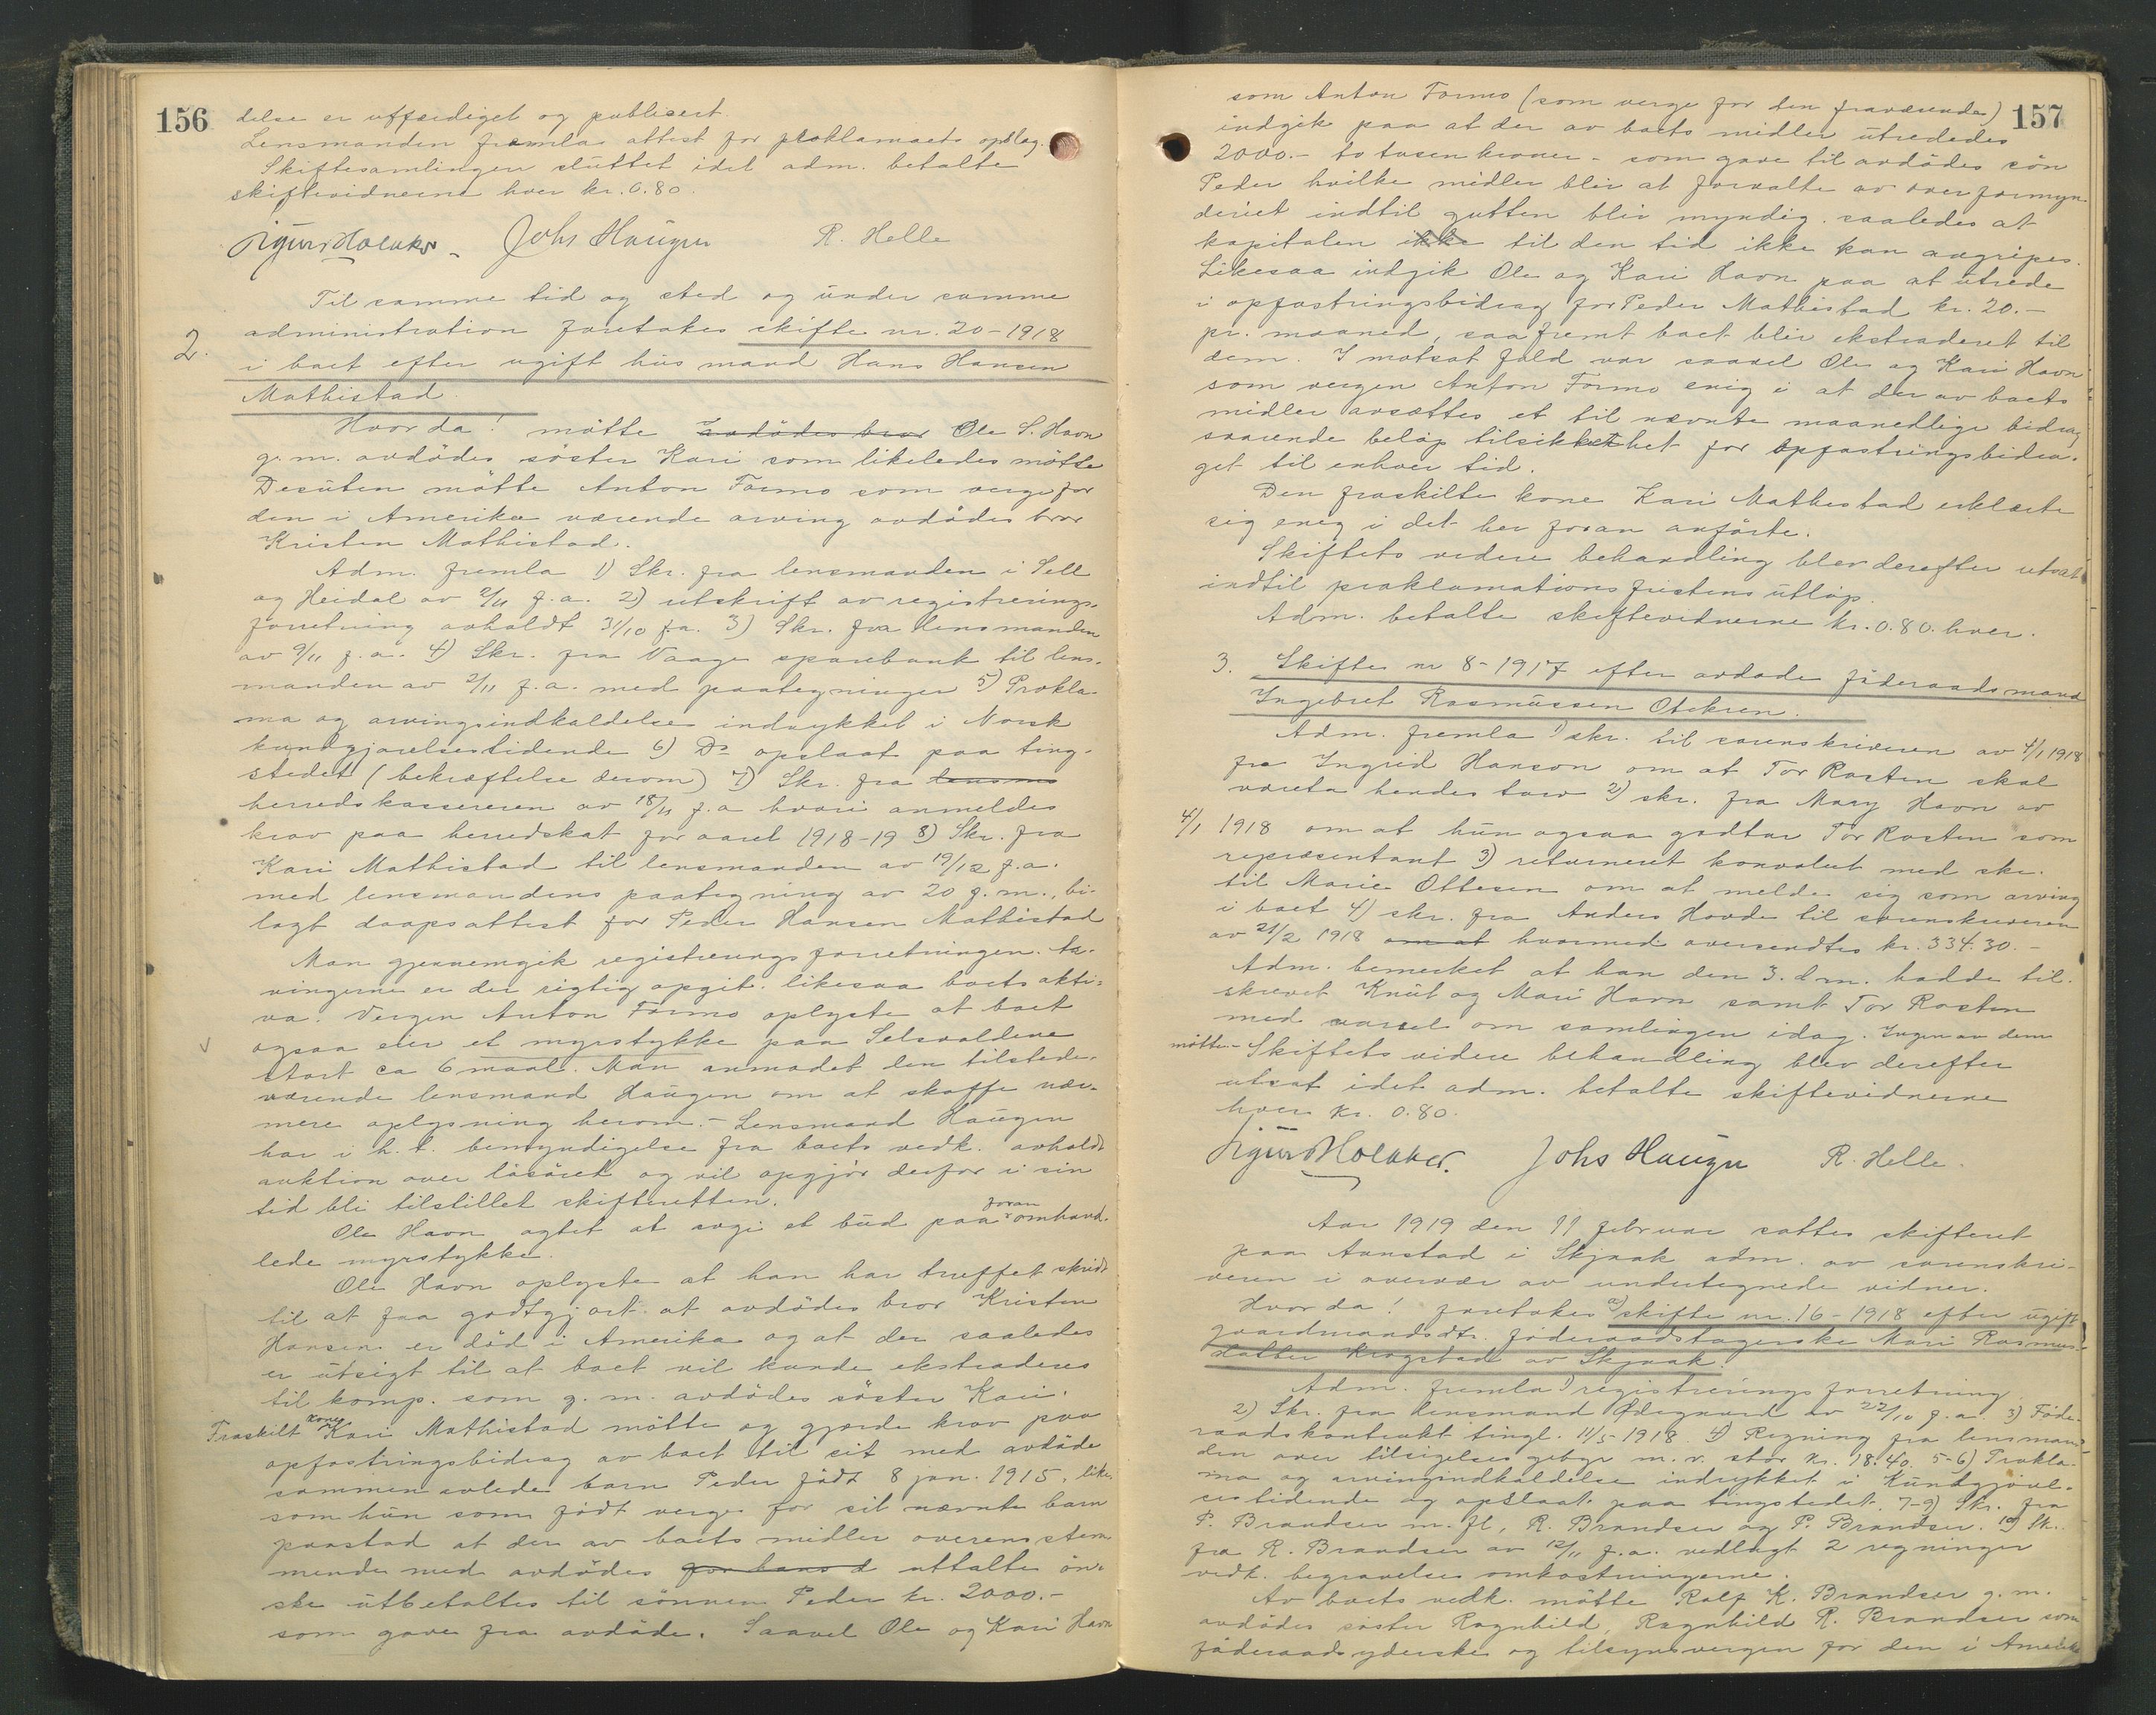 156
delse er utfærdiget og publisert.
Lensmanden fremla attest for proklamaets opslag.
Skiftesamlingen sluttet idet adm. betalte
skiftevidnerne hver kr. 0.80.
Johs Haugen R. Helle
Til samme tid og sted og under samme
administration foretokes skifte nr. 20-1918
2.
i boet efter ugift husmand Hans Hansen
Mathistad.
Hvorda! møtte avdødes bror Ole S. Havn
g.m. avdødes søster Kari som likeledes møtte
Desuten møtte Anton Formo som verge for
den i Amerika værende arving avdødes bror
Kristen Mathistad.
Adm. fremla 1) Skr. fra lensmanden i Sell
og Heidal av 2/11 f.a. 2) utskrift av registrerings-
forretning avholdt 31/10 f.a. 3) Skr. fra lensmanden
av 9/11 f.a. 4) Skr. fra Vaage sparebank til lens-
manden av 2/11 f.a. med paategninger 5) Prokla-
ma og arvingsindkaldelse indrykket i Norsk
kundgjørelsestidende 6) Do opslaat paa ting-
stedet (bekræftelse derom) 7) Skr. fra lensma
herredskassereren av 18/11 f.a. hvori anmeldes
krav paa herredskat for aaret 1918-19 8) Skr. fra
Kari Mathistad til lensmanden av 19/12 f.a.
med lensmandens paategning av 20 s.m., bi-
lagt daapsattest for Peder Hansen Mathistad
Man gjennemgik registreringsforretningen. Ar-
vingerne er der rigtig opgit. likesaa boets akti-
va. Vergen Anton Formo oplyste at boet
ogsaa eier et myrstykke paa Selsvoldene
stort ca 6 maal. Man anmodet den tilstede-
værende lensmand Haugen om at skaffe nær-
mere oplysning herom. - Lensmand Haugen
har i h.t. bemyndigelse fra boets vedk. avholdt
auktion over løsøret og vil opgjør derfor i sin
tid bli tilstillet skifteretten.
foran
Ole Havn agtet at avgi et bud paa omhand-
lede myrstykke.
Ole Havn oplyste at han har truffet skridt
til at faa godtgjort at avdødes bror Kristen
Hansen er død i Amerika og at der saaledes
er utsigt til at boet vil kunde ekstraderes
til komp. som g.m. avdødes søster Kari.
kone
Fraskilt Kari Mathistad møtte og gjorde krav paa
opfostringsbidrag av boet til sit med avdøde
sammen avlede barn Peder født 8 jan. 1915, like-
som hun som født verge for sit nævnte barn
paastod at der av boets midler overensstem-
mende med avdødes for hans d uttalte øn-
ske utbetaltes til sønnen Peder kr. 2000.-
som gave fra avdøde. Saavel Ole og Kari Havn
157
som Anton Formo (som verge for den fraværende)
indgik paa at der av boets midler utrededes
2000.- to tusen kroner - som gave til avdødes søn
Peder hvilke midler blir at forvalte av overformyn-
deriet indtil gutten blir myndig. saaledes at
kapitalen ikke til den tid ikke kan angripes.
Likesaa indgik Ole og Kari Havn paa at utrede
i opfostringsbidrag for Peder Mathistad kr. 20.-
pr. maaned, saafremt boet blir ekstraderet til
dem. I motsat fald var saavel Ole og Kari Havn
som vergen Anton Formo enig i at der av boets
midler avsættes et til nævnte maanedlige bidrag
svarende beløp til sikkerhet for opfostringsbidra-
get til enhver tid.
Den fraskilte kone Kari Mathistad erklærte
sig enig i det her foran anførte.
Skiftets videre behandling blev derefter utsat
indtil proklamationsfristens utløp.
Adm. betalte skiftevidnerne kr. 0.80. hver.
3. Skifte nr 8-1917 efter avdøde føderaadsmand
Ingebret Rasmussen Otekren.
Adm. fremla 1) skr. til sorenskriveren av 4/1 1918
fra Ingrid Hanson om at Tor Rosten skal
vareta hendes tarv 2) skr. fra Mary Havn av
4/1 1918 om at hun ogsaa godtar Tor Rosten som
repræsentant 3) returneret konvolut med skr.
til Marie Ottesen om at melde sig som arving
i boet 4) skr. fra Anders Hovde til sorenskriveren
av 21/2 1918 om at hvormed oversendtes kr. 334.30.-
Adm. bemerket at han den 3. d.m. hadde til-
skrevet Knut og Mari Havn samt Tor Rosten
med varsel om samlingen idag. Ingen av dem
møtte.- Skiftets videre behandling blev derefter
utsat idet adm. betalte skiftevidnerne
hver kr. 0.80.
Johs Haugen R. Helle.
Aar 1919 den 11 februar sattes skifteret
paa Aanstad i Skjaak adm. av sorenskri-
veren i overvær av undertegnede vidner.
Hvorda! foretokes a) skifte nr. 16-1918 efter ugift
gaardmandsdtr. føderaadstagerske Mari Rasmus-
datter Krogstad av Skjaak.
Adm. fremla 1) registreringsforretning
2) Skr. fra lensmand Ødegaard av 22/10 f.a. 3) Føde-
raadskontrakt tingl. 11/5 1918. 4) Regning fra lensman-
den over tilsigelsesgebyr m.v. stor kr. 18.40. 5-6) Prokla-
ma og arvingsindkaldelse indrykket i Kundgjørel-
sestidende og opslaat paa tingstedet. 7-9) Skr. fra
P. Brandser m.fl., R. Brandser og P. Brandser. 10) Skr.
fra R. Brandser av 12/11 f.a. vedlagt 2 regninger
vedk. begravelsesomkostningerne.
Av boets vedk. møtte Rolf K. Brandser g.m.
avdødes søster Ragnhild, Ragnhild R. Brandser som
føderaadsyderske og tilsynsvergen for den i Amerika